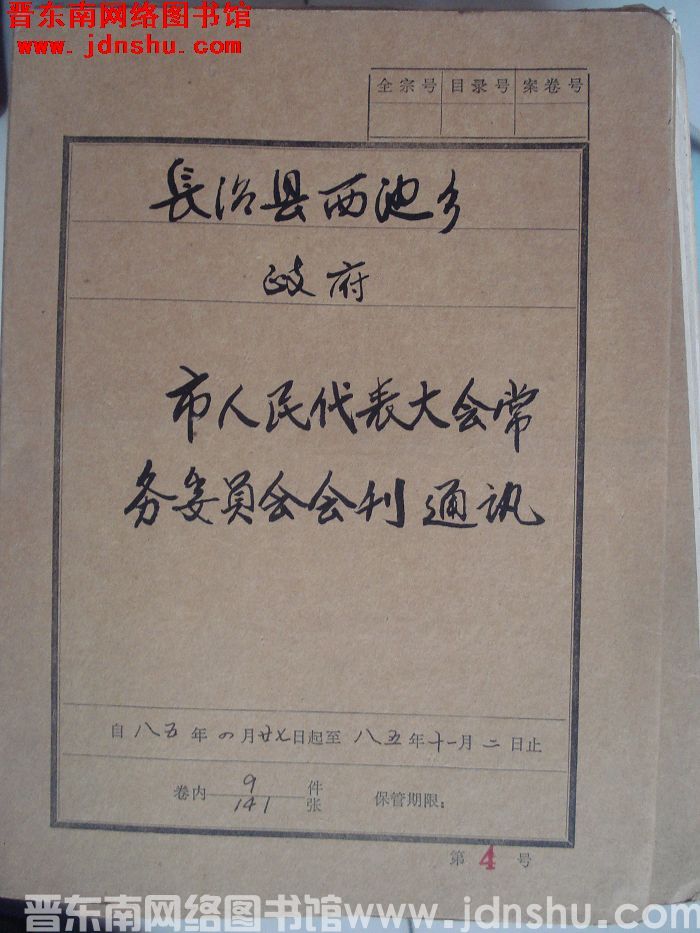 晋东南网络图书馆
www.jdnshu.com
全宗号 目录号 案卷号
長治县西池乡
政府
市人民代表大会常
务委员会会刊通讯
自八五年四月廿七日起至八五年十一月二日止
卷内 9 件 141 张 保管期限：
第 4 号
晋东南网络图书馆www.jdnshu.com